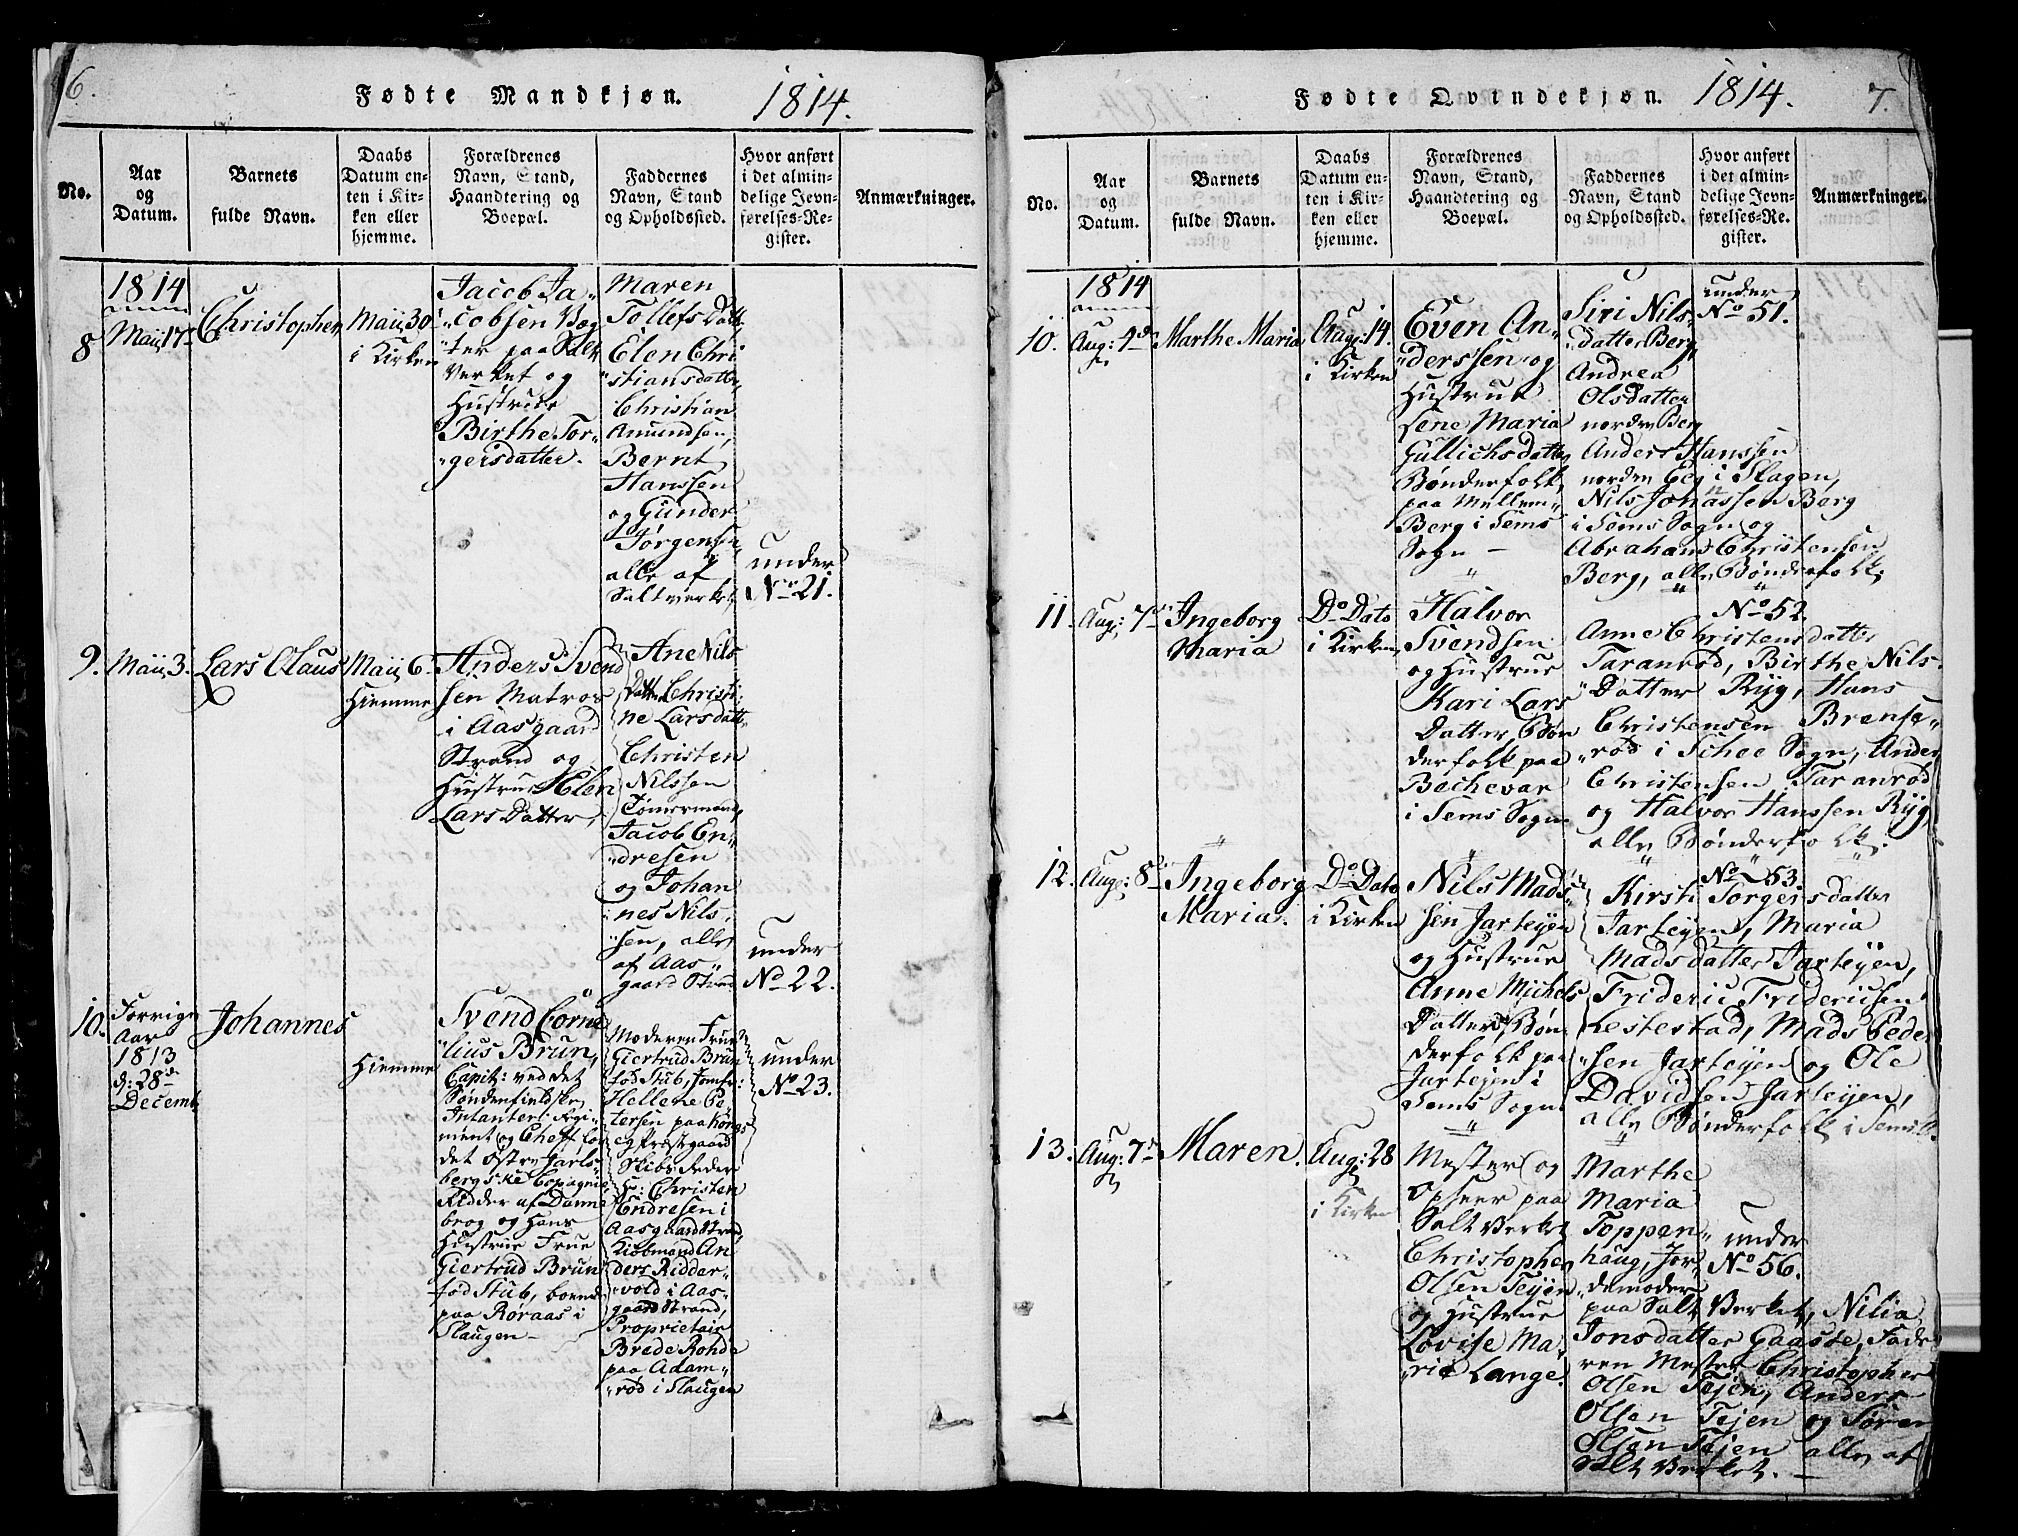 6.
Fødte Mandkjøn. 1814.
No.
Aar
og
Datum.
Barnets
fulde Navn.
Daabs
Datum en-
ten i Kir-
ken eller
hjemme.
Forældrenes
Navn, Stand,
Haandtering og
Boepæl.
Faddernes
Navn, Stand
og Opholdssted.
Hvor anført
i det almin-
delige Jevn-
førelses-Re-
gister.
Anmærkninger.
8
1814
Maii 17
Christopher
Maii 30
i Kirken
Jacob Ja-
cobsen Bøg
ter paa Salt
Verket og
Hustrue
Birthe Tor-
gersdatter.
Maren
Tollefs Datt
Elen Chri
stiansdatter,
Christian
Amundsen,
Bernt
Hanssen
og Gunder
Jørgensen,
alle af
Saltverket,
under
No 21.
9.
Maii 3.
Lars Claus
Maii 6.
Hiemme
Anders Svend
sen Matros
i Aasgaard
Strand og
Hustrue Elen
Lars Datter,
Ane Nils
Datter, Christi-
ne Larsdatt,
Christen
Nilssen
Tømermand,
Jacob En-
dresen
og Johan
nes Nils,
sen, alle
af Aas-
gaard Strand
under
No 22.
10.
Forrige
Aar
1813
d: 28de
Decemb
Johannes
Hiemme
Svend Corne
lius Brun,
Capit: ved det
Søndenfieldske
Infanteri Regi-
ment og Chef for
det østre Jarls-
bergske Copagnie
Ridder af Danne
brog og Hans
Hustrue Frue
Giertrud Brun
fød Stub, boende
paa Røraas i
Slaugen -
Moderen Frue
Giertrud Brun
fød Stub, Jomfr:
Hellene Pe
tersen paa Borges
eg Præstgaard
Skibs Reder
H: Christen
Endresen i
Aasgaard Stran
Kiøbmand An
ders Ridder-
vold i Aas-
gaard Strand,
Proprietair
Brede Rohde
paa Adam-
rød i Slaugen
under
No 23.
Fødte Qvindekjøn. 1814. 7.
No.
Aar
og
Datum.
Barnets
fulde Navn.
Daabs
Datum en-
ten i Kir-
ken eller
hjemme.
Forældrenes
Navn, Stand,
Haandtering og
Boepæl.
Faddernes
Navn, Stand
og Opholdssted.
Hvor anført
i det almin-
delige Jevn-
førelses-Re-
gister.
Anmærkninger.
10.
1814
Aug: 4de
Marthe Maria
Aug: 14.
i Kirken
Even An-
derssen og
Hustrue
Lene Maria
Gullichsdatter
Bønderfolk
paa Mellem-
Berg i Sems
Sogn -
Siri Nils-
datter Berg,
Andrea
Olsdatter
norden Berg
Anders Hanssen
norden Eeg i Slagen,
Nils Jonassen Berg
i Sems Sogn og
Abraham Christensen
Berg, alle Bønderfolk.
under
No 51.
11.
Aug: 7de
Ingeborg
Maria
Do Dato
i Kirken,
Halvor
Svendsen
og Hustrue
Kari Lars
Datter, Bøn
derfolk paa
Bechevar
i Sems Sogn
No 52
Anne Christensdatter
Taranrød, Birthe Nils-
Datter Ryg, Hans
Christensen Brense-
rød i Schee Sogn, Anders
Christensen Taranrød
og Halvor Hanssen Ryg,
alle Bønderfolk.
12.
Aug: 8de
Ingeborg
Maria.
Do Dato
i Kirken
Nils Mads-
sen Jarteyen
og Hustrue
Anne Michels
Datter, Bøn-
derfolk paa
Jarteyen i
Sems Sogn
No 53.
Kirsti Torgersdatter
Jarteyen, Maria
Madsdatter Jarteyen,
Frideric Fridericsen
Lesterstad, Mads Peder
sen Jarteyen og Ole
Davidsen Jarteyen,
alle Bønderfolk i Sems S.
13.
Aug: 7de
Maren.
Aug: 28
i Kirken
Mester og
Opseer paa
Salt Verket
Christopher
Olsen Teyen
og Hustrue
Lovise Ma-
rie Lange.
Marthe
Maria
Toppen-
haug, Jor-
demoder
paa Salt Verket, Nilia
Jonsdatter Gaasøe, Fade
ren Mester Christopher
Olsen Tejen, Anders
Olsen Tejen og Søren
Olsen Tejen alle af
Salt Verket. -
under
No 56.